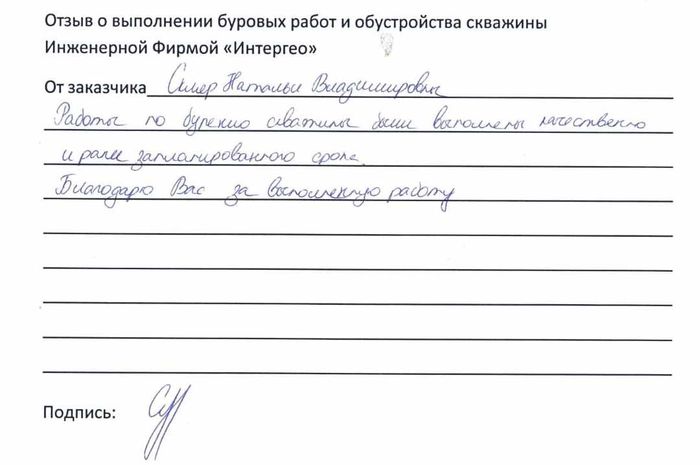 Отзыв о выполнении буровых работ и обустройства скважины
Инженерной Фирмой «Интергео»
От заказчика Натальи Владимировны
Работы по бурению скважины были выполнены качественно
и ранее запланированного срока.
Благодарю Вас за выполненную работу
Подпись: